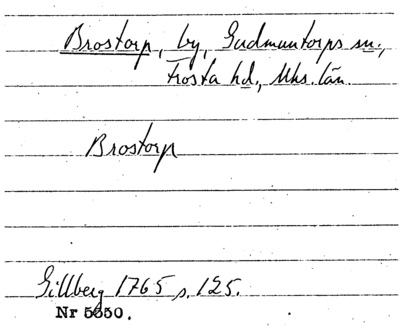 Brostorp, by, Gudmuntorps sn.,
Frosta hd., Mhs. län.
Brostorp
Gillberg 1765 s. 125.
Nr 5650.